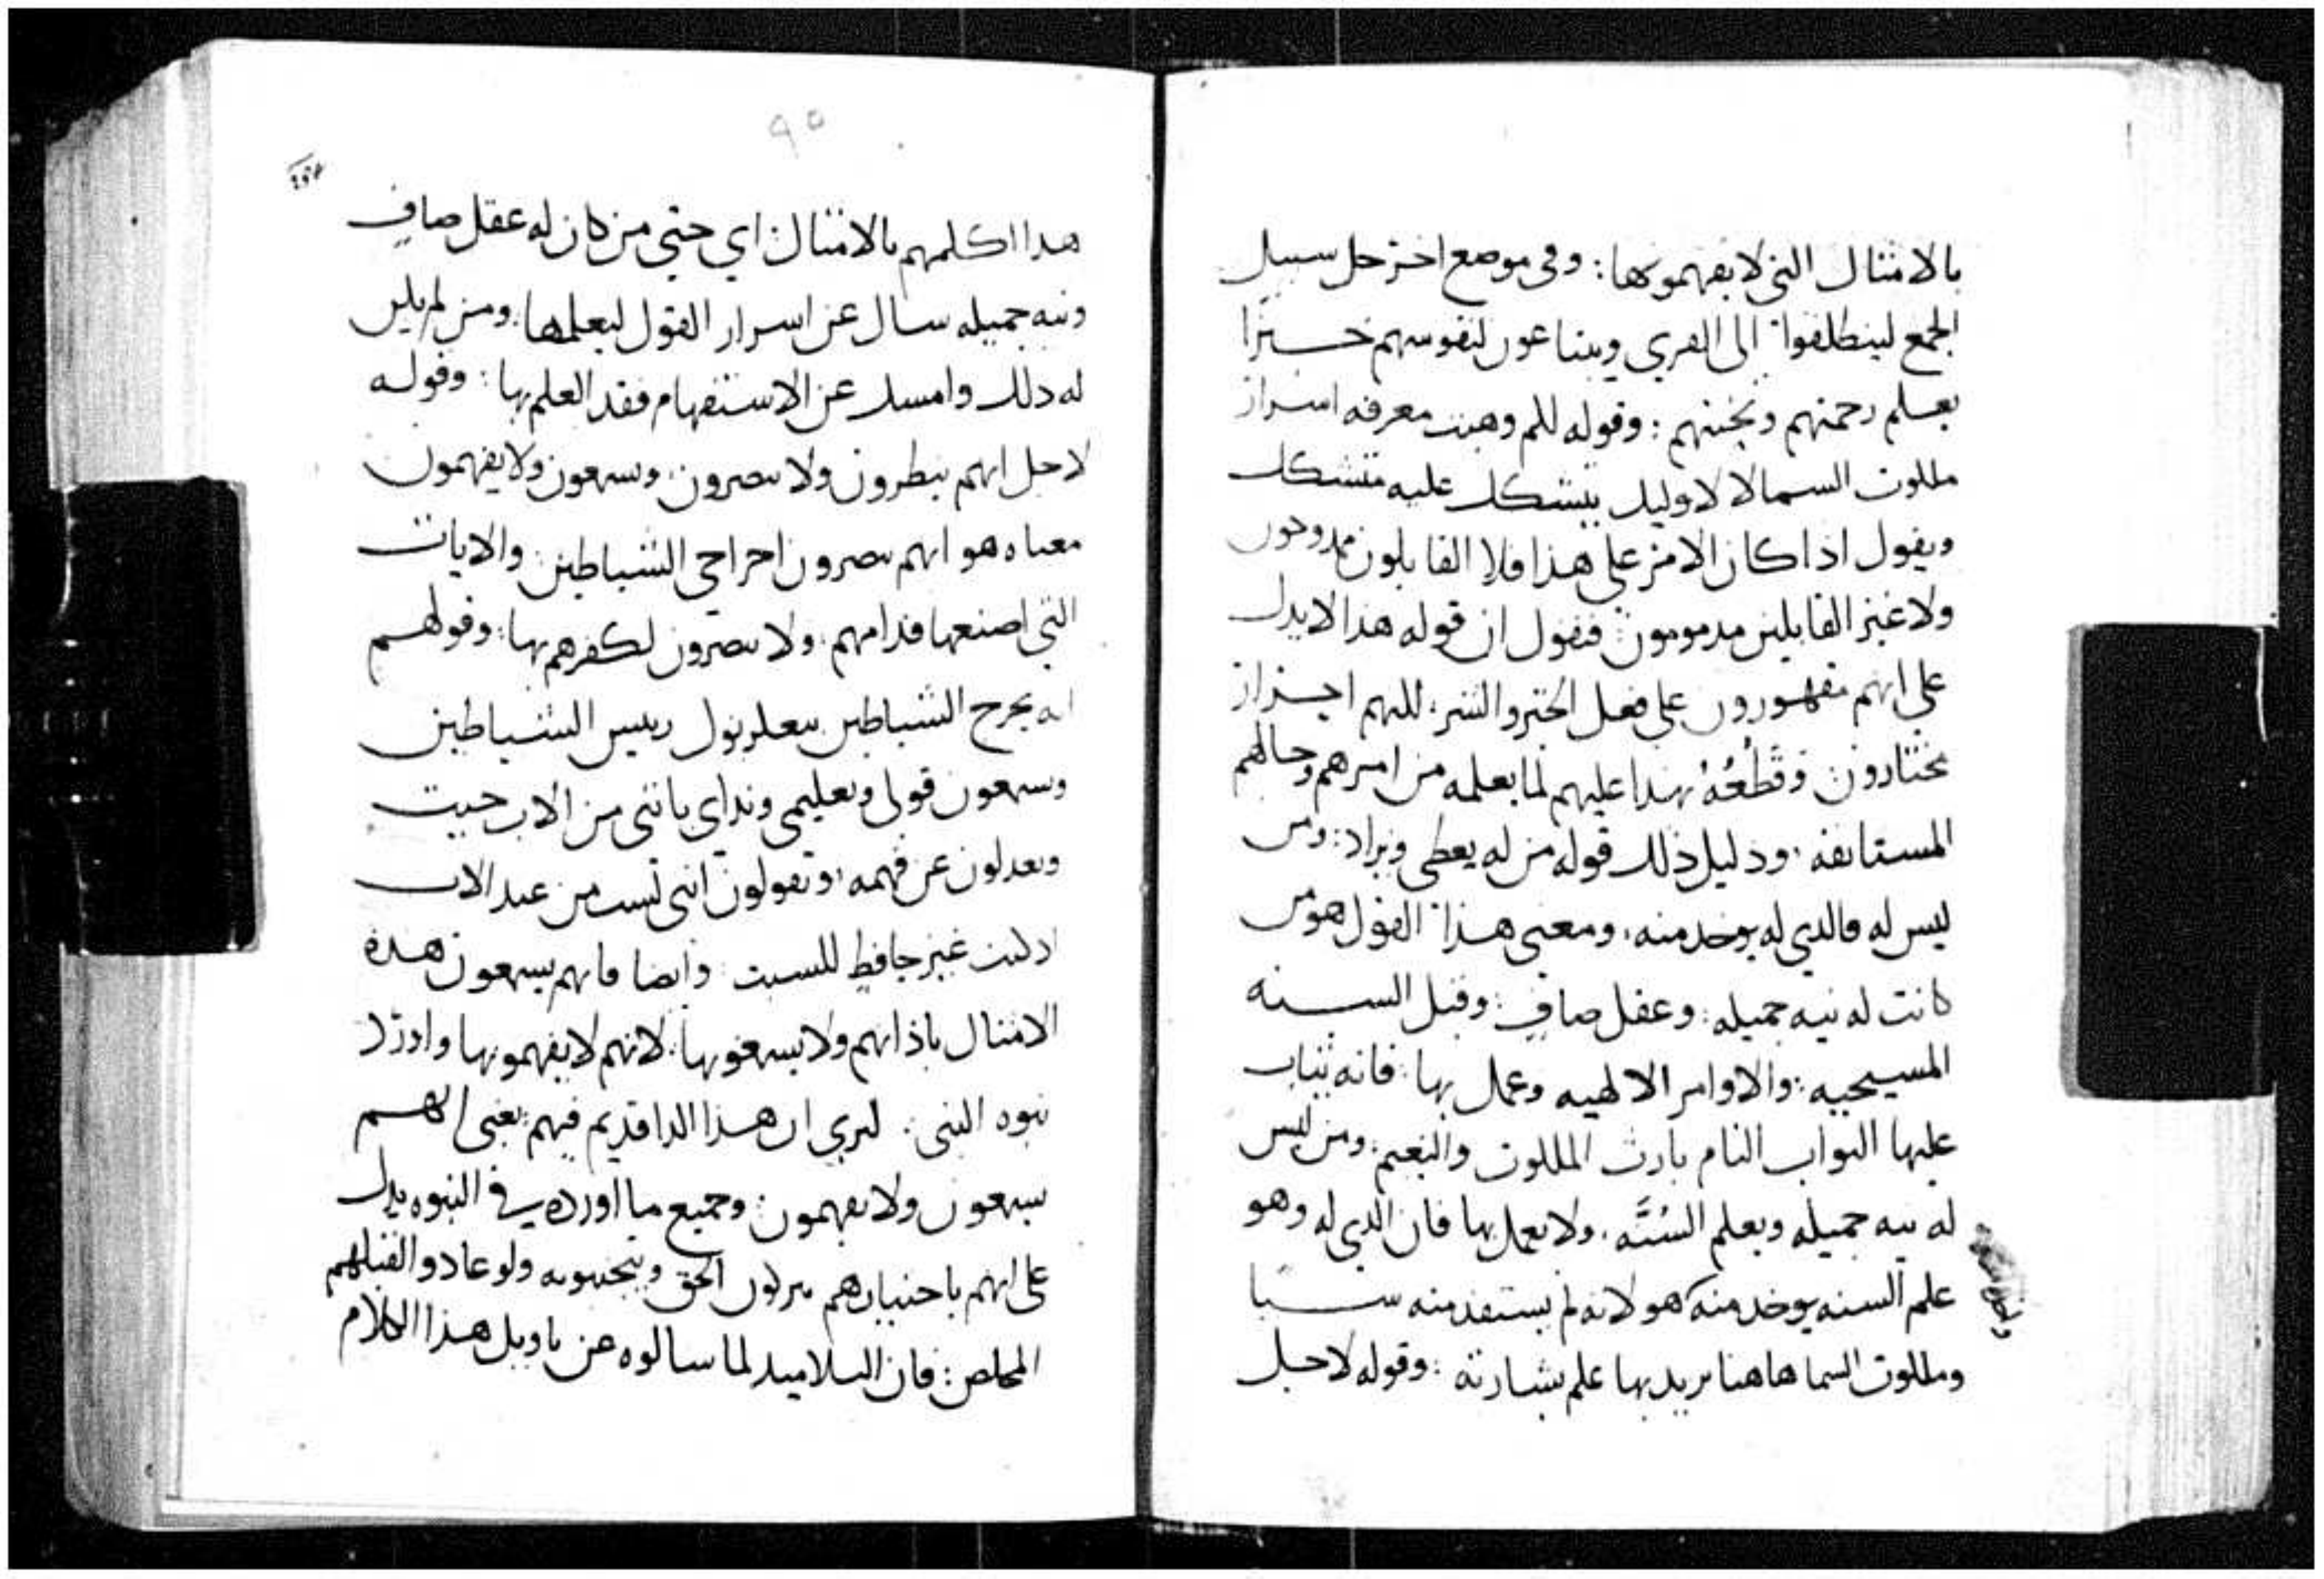 بالامثال التي لا يفهمونها: وفي موضع اخر حل سبيل
الجمع لينطلقوا الى القرى ويبتاعون لنفوسهم خبزا
بعلم رحمتهم وتحننهم: وقوله لكم وهبت معرفه اسرار
ملكوت السما لا لاوليك يتشكك عليه متشكك
ويقول اذا كان الامر على هذا فلا القابلون ممدوحون
ولا غير القابلين مدمومون: فنقول ان قوله هذا لا يدل
على انهم مقهورون على فعل الخير والشر، لكنهم احرار
مختارون: وقَطْعُهُ بهذا عليهم لما يعلمه من امرهم وحالهم
المستانفه، ودليل ذلك قوله من له يعطى ويزاد: ومن
ليس له فالذي له يوخد منه، ومعنى هذا القول هو من
كانت له نيه جميله، وعقل صاف: وقبل السنه
المسيحيه: والاوامر الالهيه وعمل بها: فانه يثاب
عليها الثواب التام بارث الملكوت والنعيم: ومن ليس
له نيه جميله وبعلم السُنَّه، ولا يعمل بها فان الذي له وهو
علم السنه يوخد منه هو لانه لم يستفد منه شيا
وملكوت السما هاهنا يريد بها علم بشارته: وقوله لاجل
٩٥
هذا اكلمهم بالامثال: اي حتي من كان له عقل صاف
ونيه جميله سال عن اسرار القول ليعلمها: ومن لم يكن
له ذلك وامسك عن الاستفهام فقد العلم بها: وقوله
لاجل انهم ينظرون ولا يبصرون، ويسمعون ولا يفهمون
معناه هو انهم يبصرون اخراجي الشياطين والايات
التي اصنعها قدامهم، ولا يبصرون لكفرهم بها: وقولهم
انه يخرج الشياطين ببعلزبول رييس الشياطين
ويسمعون قولي وتعليمي ونداي بانني من الاب جيت
ويعدلون عن فهمه، ويقولون انني لست من عند الاب
اذ كنت غير حافظ للسبت: وايضا فانهم يسمعون هذه
الامثال باذانهم ولا يسمعونها: لانهم لا يفهمونها واورد
نبوه النبي: ليري ان هذا الدا قديم فيهم: يعني انهم
يسمعون ولا يفهمون: وجميع ما اورده في النبوه يدل
على انهم باختيارهم يتركون الحق ويتجنبونه ولو عادوا لقبلهم
المخلص: فان التلاميد لما سالوه عن تاويل هذا الكلام